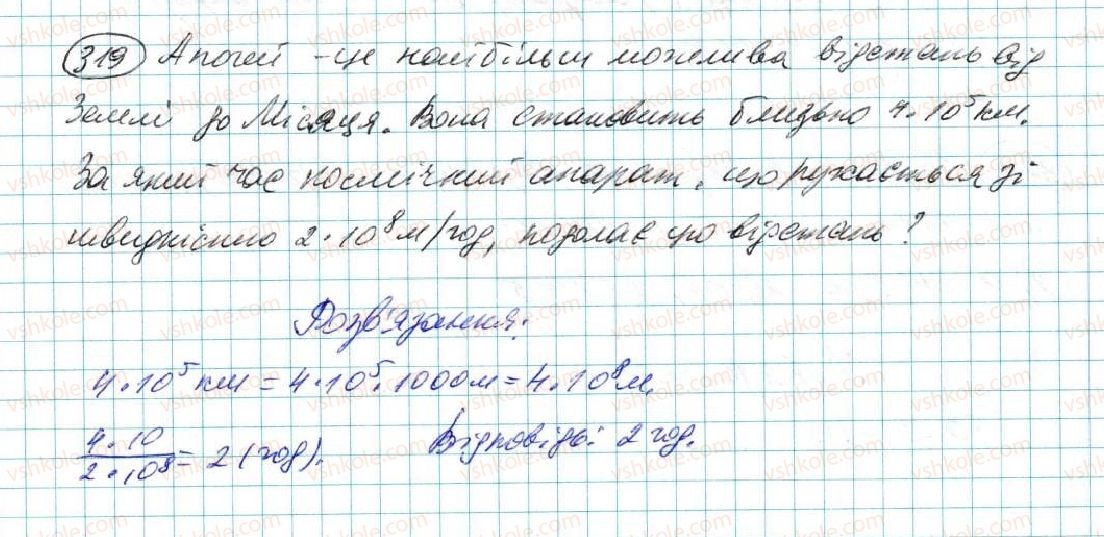 319 Апогей – це найбільш можлива відстань від
Землі до Місяця. Вона становить близько 4·10⁵ км.
За який час космічний апарат, що рухається зі
швидкістю 2·10⁸ м/год, подолає цю відстань?
Розв'язання:
4·10⁵ км = 4·10⁵·1000м = 4·10⁸ м.
4·10 / 2·10⁸ = 2 (год). Відповідь: 2 год.